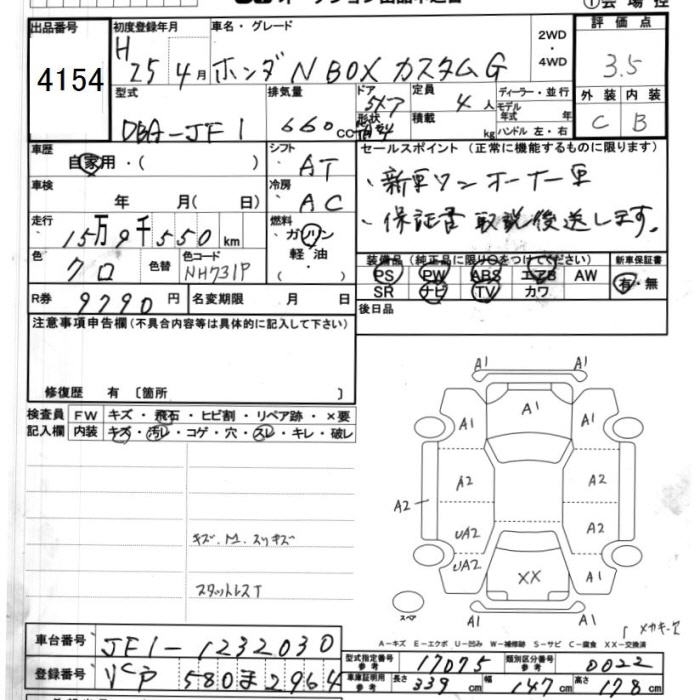 ① 会 場 控
出品番号 4154
初度登録年月 H 25 4月
車名・グレード ホンダ N BOX カスタム G
2WD・4WD
評価点 3.5
型式 DBA-JF1
排気量 660cc
ドア形状 5ドア
定員 4人
積載 kg
ディーラー・並行
モデル年式 年
ハンドル 左・右
外装 C
内装 B
車歴 自家用・( )
シフト AT
セールスポイント (正常に機能するものに限ります)
・新車ワンオーナー車
・保証書 取説後送します。
車検 年 月( 日)
冷房 AC
走行 15万9千550km
燃料 ガソリン 軽油・
色 クロ 色替
色コード NH731P
装備品 (純正品に限り○をつけてください)
PS PW ABS エアB AW
SR ナビ TV カワ
新車保証書 有・無
R券 9790円
名変期限 月 日
後日品
注意事項申告欄(不具合内容等は具体的に記入して下さい)
修復歴 有 〔箇所 〕
検査員記入欄
FW キズ・飛石・ヒビ割・リペア跡・×要
内装 キズ・汚レ・コゲ・穴・スレ・キレ・破レ
スタットレスT
A1 A1
A1
A1 A1
A2 A2
A2
UA2 A2
UA2 A1
XX
A1 A1
スペア
A-キズ E-エクボ U-凹み W-補修跡 S-サビ C-腐食 XX-交換済
車台番号 JF1-1232030
型式指定番号 参考 17075
類別区分番号 参考 0022
登録番号 580 ま 2964
車庫証明用 参考 長さ 339cm 幅 147cm 高さ 178cm